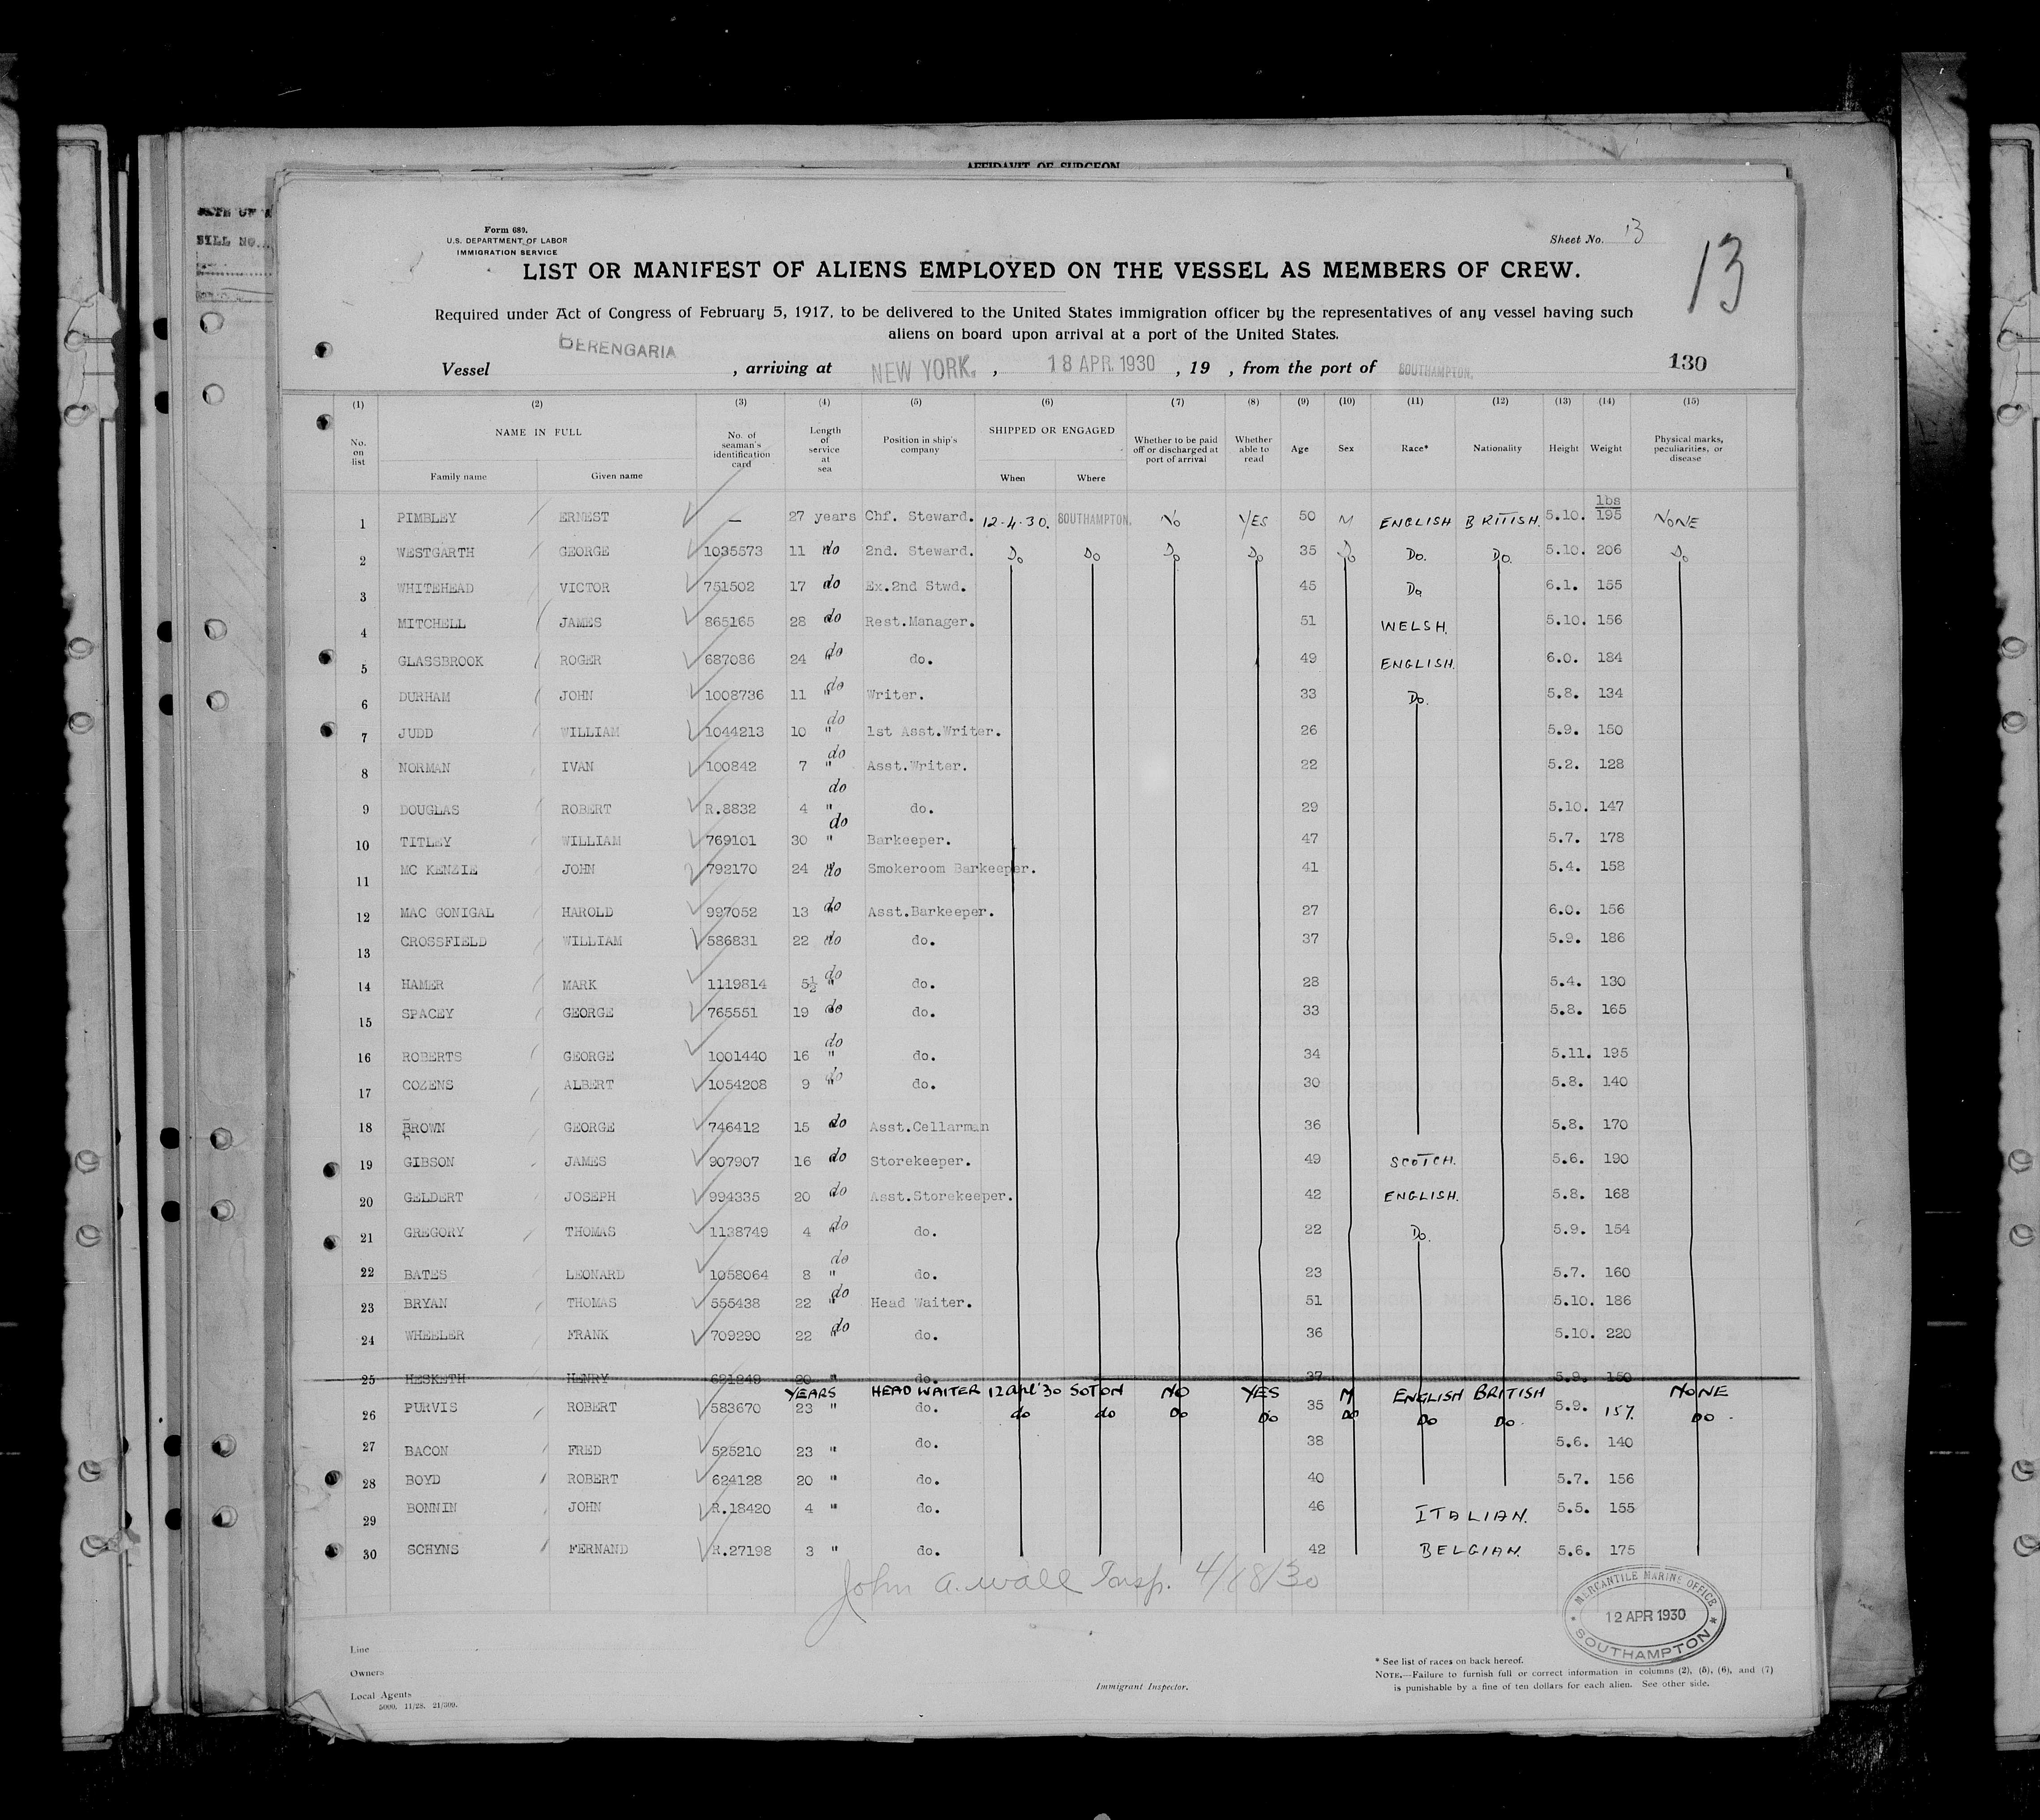 AFFIDAVIT OF SURGEON
BILL NO.
Form 689.
U.S. DEPARTMENT OF LABOR
IMMIGRATION SERVICE
Sheet No. 13
13
LIST OR MANIFEST OF ALIENS EMPLOYED ON THE VESSEL AS MEMBERS OF CREW.
Required under Act of Congress of February 5, 1917, to be delivered to the United States immigration officer by the representatives of any vessel having such
aliens on board upon arrival at a port of the United States.
Vessel BERENGARIA, arriving at NEW YORK., 18 APR. 1930, 19 , from the port of SOUTHAMPTON. 130
(1) (2) (3) (4) (5) (6) (7) (8) (9) (10) (11) (12) (13) (14) (15)
No. on list NAME IN FULL Family name Given name No. of seaman's identification card Length of service at sea Position in ship's company SHIPPED OR ENGAGED When Where Whether to be paid off or discharged at port of arrival Whether able to read Age Sex Race* Nationality Height Weight Physical marks, peculiarities, or disease
lbs
1 PIMBLEY ERNEST — 27 years Chf. Steward. 12-4-30. SOUTHAMPTON. No YES 50 M ENGLISH BRITISH. 5.10. 195 NONE
2 WESTGARTH GEORGE 1035573 11 do 2nd. Steward. Do Do Do Do 35 Do Do. Do. 5.10. 206 Do
3 WHITEHEAD VICTOR 751502 17 do Ex.2nd Stwd. 45 Do 6.1. 155
4 MITCHELL JAMES 865165 28 do Rest.Manager. 51 WELSH. 5.10. 156
5 GLASSBROOK ROGER 687086 24 do do. 49 ENGLISH. 6.0. 184
6 DURHAM JOHN 1008736 11 " do Writer. 33 Do. 5.8. 134
7 JUDD WILLIAM 1044213 10 " do 1st Asst.Writer. 26 5.9. 150
8 NORMAN IVAN 100842 7 " do Asst.Writer. 22 5.2. 128
9 DOUGLAS ROBERT R.8832 4 " do do. 29 5.10. 147
10 TITLEY WILLIAM 769101 30 " do Barkeeper. 47 5.7. 178
11 MC KENZIE JOHN 792170 24 do Smokeroom Barkeeper. 41 5.4. 158
12 MAC GONIGAL HAROLD 997052 13 do Asst.Barkeeper. 27 6.0. 156
13 CROSSFIELD WILLIAM 586831 22 do do. 37 5.9. 186
14 HAMER MARK 1119814 5½ " do do. 28 5.4. 130
15 SPACEY GEORGE 765551 19 do do. 33 5.8. 165
16 ROBERTS GEORGE 1001440 16 " do do. 34 5.11. 195
17 COZENS ALBERT 1054208 9 " do do. 30 5.8. 140
18 BROWN GEORGE 746412 15 do Asst.Cellarman 36 5.8. 170
19 GIBSON JAMES 907907 16 do Storekeeper. 49 SCOTCH. 5.6. 190
20 GELDERT JOSEPH 994335 20 do Asst.Storekeeper. 42 ENGLISH. 5.8. 168
21 GREGORY THOMAS 1138749 4 do do. 22 Do. 5.9. 154
22 BATES LEONARD 1058064 8 " do do. 23 5.7. 160
23 BRYAN THOMAS 555438 22 " do Head Waiter. 51 5.10. 186
24 WHEELER FRANK 709290 22 " do do. 36 5.10. 220
25 HESKETH HENRY 621849 20 " do. 37 5.9. 150
YEARS HEAD WAITER 12 apl '30 SOTON NO YES M ENGLISH BRITISH NONE
26 PURVIS ROBERT 583670 23 " do. do do Do Do 35 Do Do Do. 5.9. 157. DO.
27 BACON FRED 525210 23 " do. 38 5.6. 140
28 BOYD ROBERT 624128 20 " do. 40 5.7. 156
29 BONNIN JOHN R.18420 4 " do. 46 ITALIAN. 5.5. 155
30 SCHYNS FERNAND R.27198 3 " do. 42 BELGIAN. 5.6. 175
John A. Wall Insp. 4/18/30
MERCANTILE MARINE OFFICE
12 APR 1930
SOUTHAMPTON
Line
Owners
Local Agents
5000. 11/28. 21/309.
Immigrant Inspector.
* See list of races on back hereof.
NOTE.—Failure to furnish full or correct information in columns (2), (5), (6), and (7)
is punishable by a fine of ten dollars for each alien. See other side.